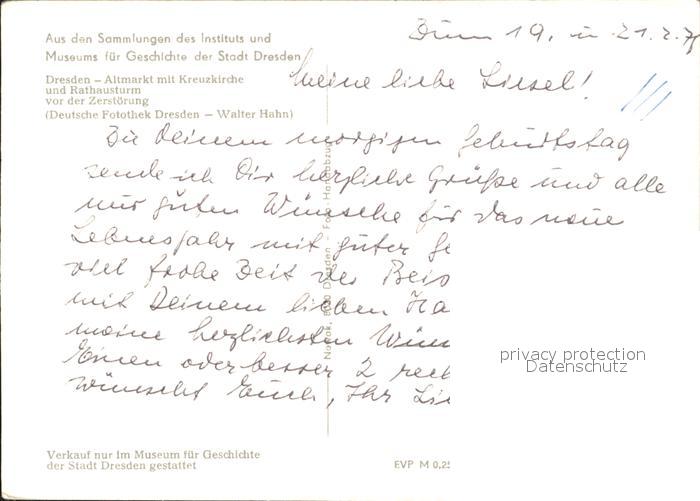 Aus den Sammlungen des Instituts und
Museums für Geschichte der Stadt Dresden
Dresden – Altmarkt mit Kreuzkirche
und Rathausturm
vor der Zerstörung
(Deutsche Fotothek Dresden – Walter Hahn)
19. u. 21.2.
Meine liebe Liesel!
Zu Deinem morgigen Geburtstag
sende ich Dir herzliche Grüße und alle
nur guten Wünsche für das neue
Lebensjahr mit guter Ge
viel frohe Zeit des Beis
mit Deinem lieben Ha
meine herzlichsten Wün
Einen oder besser 2 rech
wünscht Euch, Ihr Lie
8020 Dresden - Foto-Handabzug
privacy protection
Datenschutz
Verkauf nur im Museum für Geschichte
der Stadt Dresden gestattet
EVP M 0,25